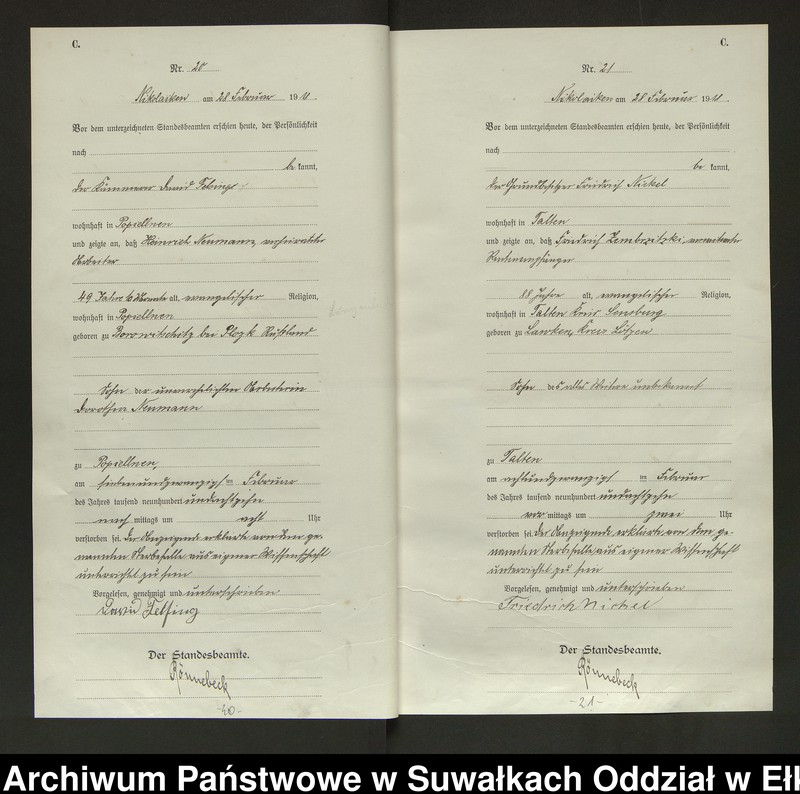 C.
Nr. 20
Nikolaiken am 28 Februar 1918.
Vor dem unterzeichneten Standesbeamten erschien heute, der Persönlichkeit
nach
be kannt,
der Kämmerer David
wohnhaft in Popiellnen
und zeigte an, daß Heinrich Neumann, verheirateter
Arbeiter
49 Jahre 6 Monate alt, evangelischer Religion,
wohnhaft in Popiellnen
geboren zu bei Plozk Rußland
Sohn der unverehelichten Arbeiterin
Dorothea Neumann
zu Popiellnen,
am siebenundzwanzigst en Februar
des Jahres tausend neunhundert undachtzehn
nach mittags um acht Uhr
verstorben sei. Der Anzeigende erklärte von dem ge-
nannten Sterbefalle aus eigener Wissenschaft
unterrichtet zu sein
Vorgelesen, genehmigt und unterschrieben
David
Der Standesbeamte.
Rönnebeck
-20-
C.
Nr. 21
Nikolaiken am 28 Februar 1918.
Vor dem unterzeichneten Standesbeamten erschien heute, der Persönlichkeit
nach
be kannt,
der Grundbesitzer Friedrich Nickel
wohnhaft in Talten
und zeigte an, daß Friedrich Zembrzitzki, verwitweter
Rentenempfänger
88 Jahre alt, evangelischer Religion,
wohnhaft in Talten Kreis Sensburg
geboren zu Lawken, Kreis Lötzen
Sohn des alles Weitere unbekannt
zu Talten
am achtundzwanzigst en Februar
des Jahres tausend neunhundert undachtzehn
vor mittags um zwei Uhr
verstorben sei. Der Anzeigende erklärte von dem ge-
nannten Sterbefalle aus eigener Wissenschaft
unterrichtet zu sein
Vorgelesen, genehmigt und unterschrieben
Friedrich Nickel
Der Standesbeamte.
Rönnebeck
-21-
Archiwum Państwowe w Suwałkach Oddział w Ełk